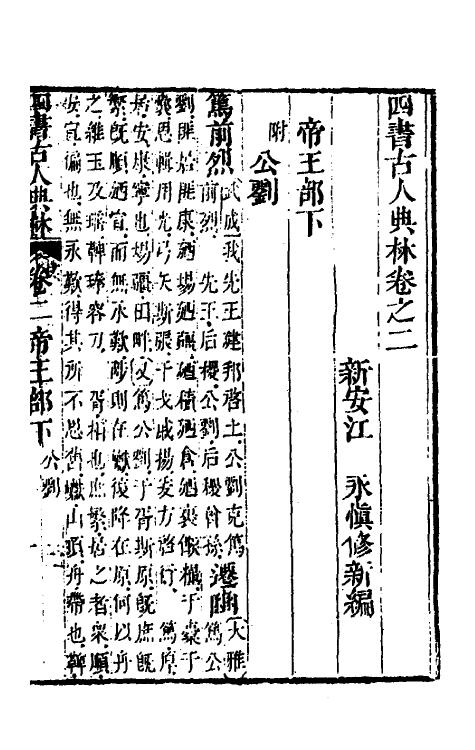 四書古人典林卷之二
新安江　永慎修新編
帝王部下
附
公劉
篤前烈　武成我先王建邦啓土公劉克篤前烈　先王后稷公劉后稷曾孫　遷豳　大雅篤公
劉匪居匪康迺場迺疆迺積迺倉迺裹餱糧于橐于
囊思輯用光弓矢斯張干戈戚揚爰方啓行　篤厚
居安康寧也場疆田畔　又篤公劉于胥斯原既庶既
繁既順迺宣而無永歎陟則在巘復降在原何以舟
之維玉及瑤鞞琫容刀　胥相也庶繁居之者衆順
安宣徧也無永歎得其所不思舊巘山頂舟帶也鞞
四書古人典林　卷二帝王部下　公劉　一